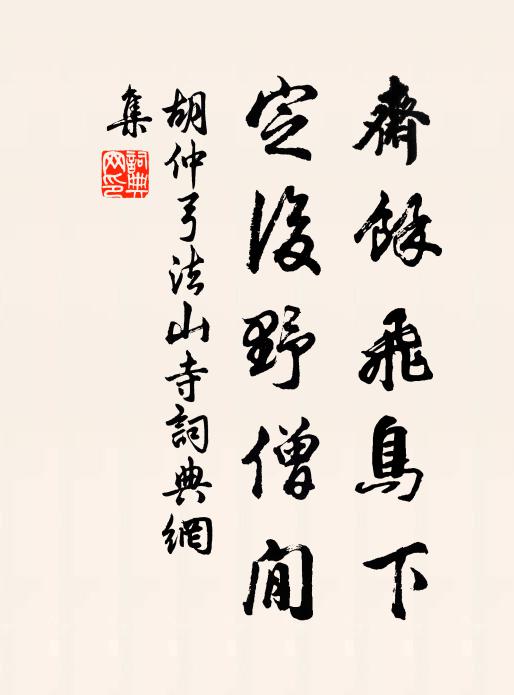 齋餘飛鳥下
定後野僧閒
胡仲弓法山寺詞典網
集
詞典網印